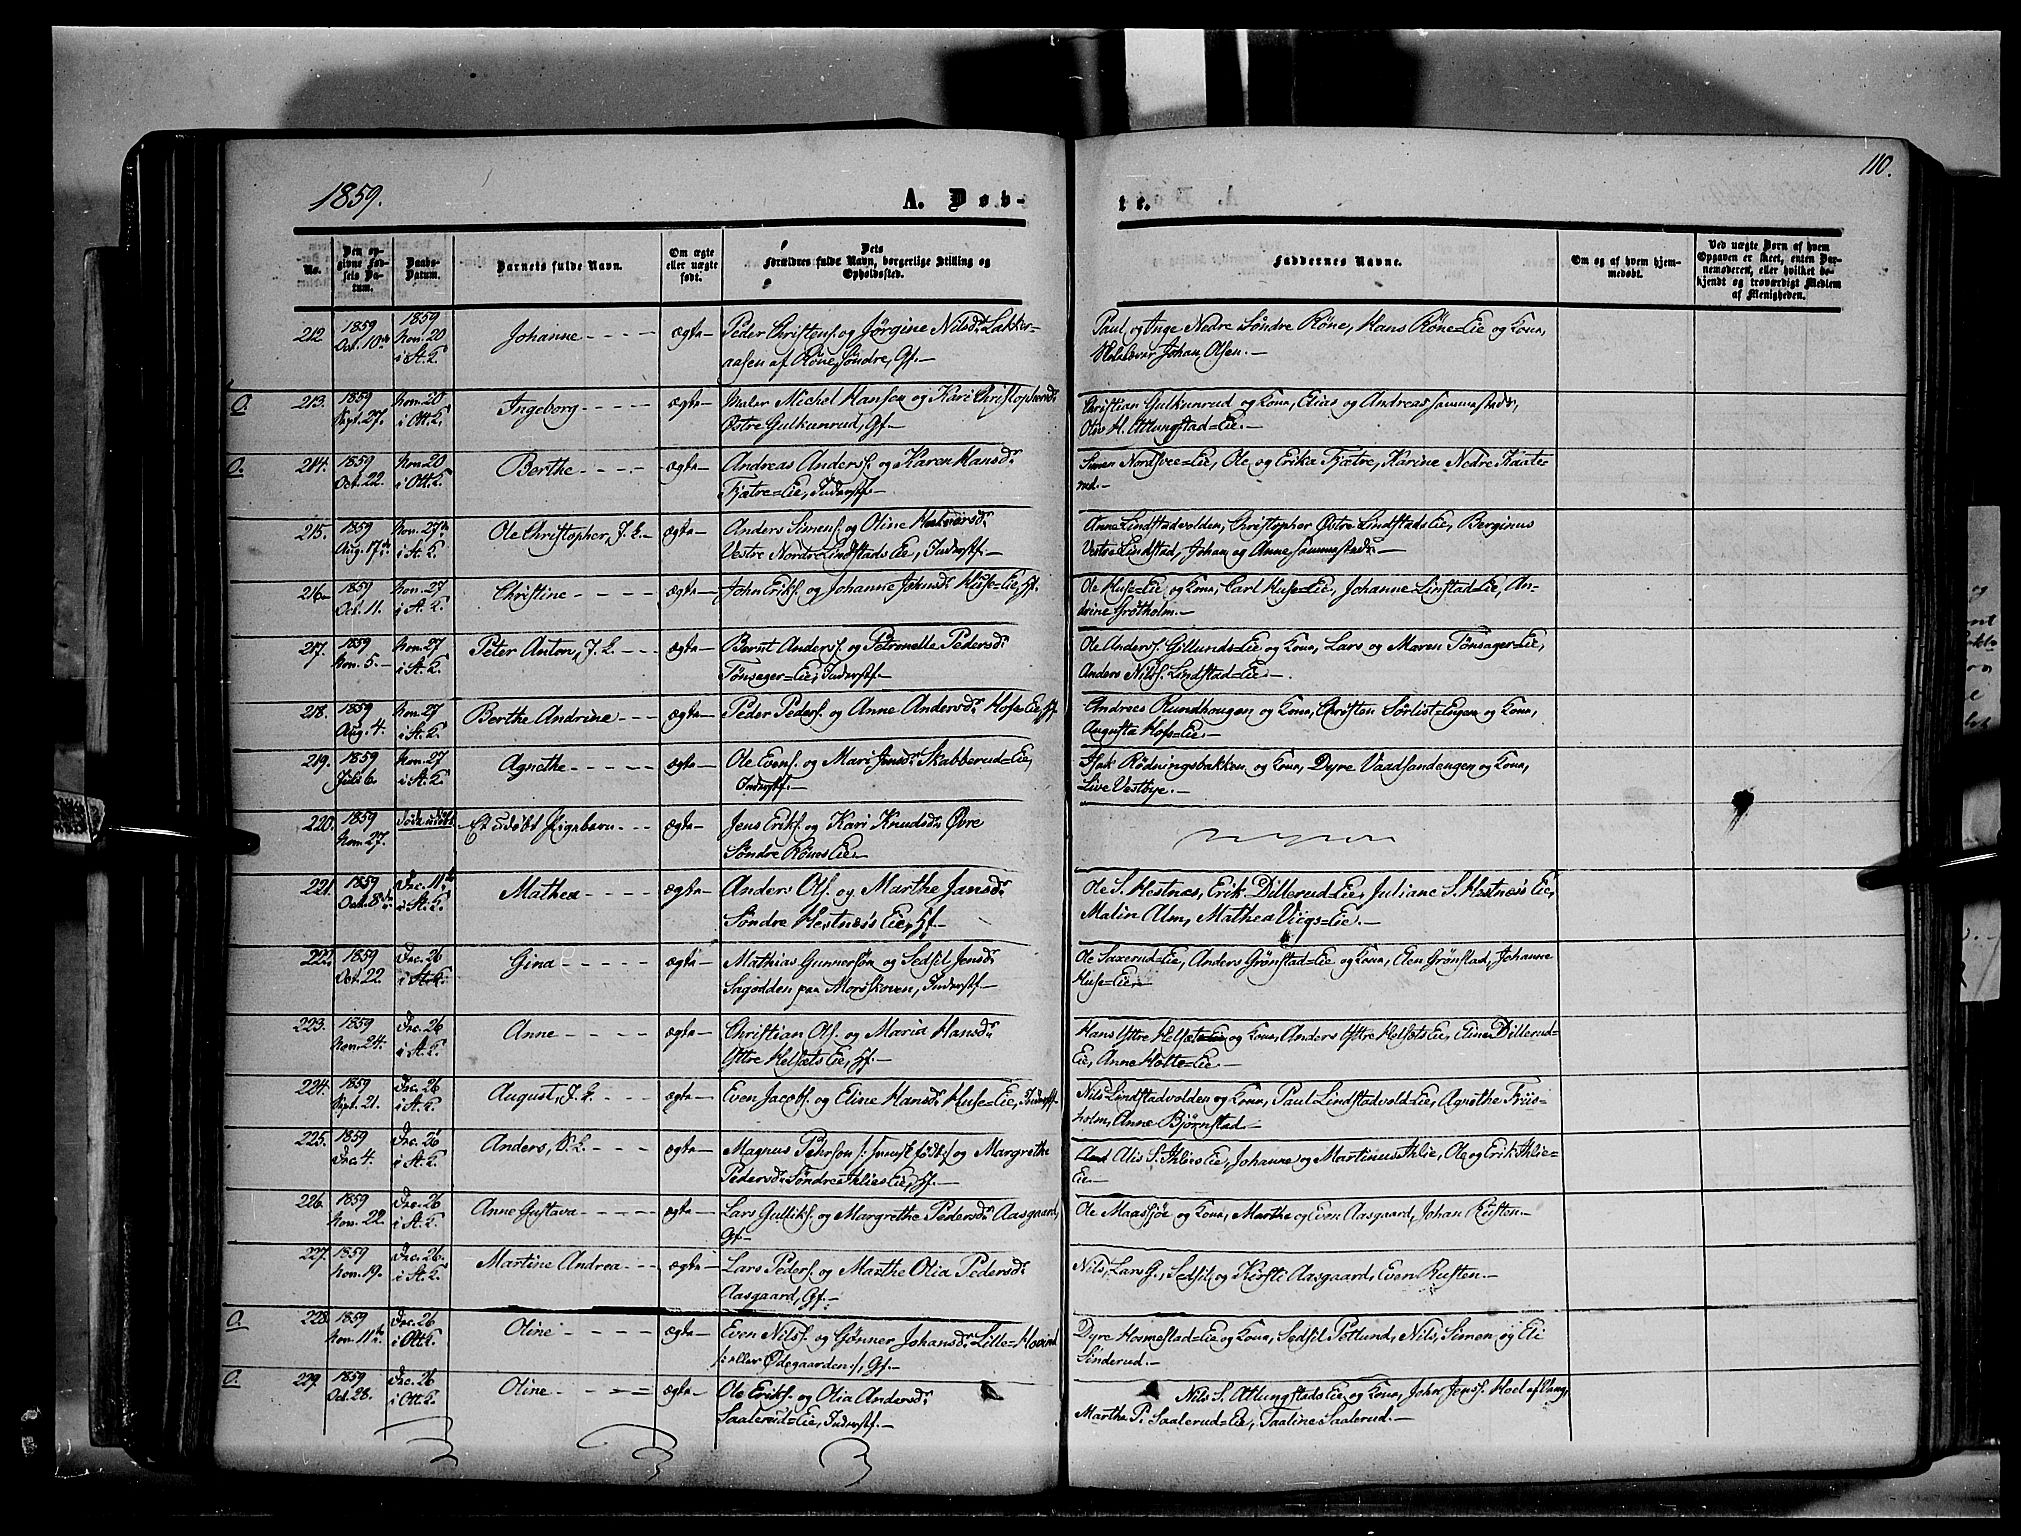 110.
1859.
A. Døb-
te.
No.
Den op-
givne Fød-
sels Da-
tum.
Daabs-
Datum.
Barnets fulde Navn.
Om ægte
eller uægte
født.
Dets
Forældres fulde Navn, borgerlige Stilling og
Opholdssted.
Faddernes Navne.
Om og af hvem hjem-
medøbt.
Ved uægte Børn af hvem
Opgaven er skeet, enten Bar-
nemoderen, eller hvilket be-
kjendt og troværdigt Medlem
af Menigheden.
212 1859 Oct. 10de 1859 Nov. 20 i St. K. Johanne - - - - ægte- Peder Christens. og Jørgine Nilsd. Lakker-
aasen af Röne Söndre, Gf.-
Paul og Inge Nedre Söndre Röne, Hans Röne=Eie og Kone,
Johan Olsen.-
O. 213. 1859 Sept. 27. Nov. 20 i Ott. K. Ingeborg - - - - ægte- Maler Michel Hansen og Kari Christophersd.
Østre Gulkunrud, Gf.-
Christian Gulkunrud og Kone, Elias og Andreas sammestads,
Oliv H. Atlungstad=Eie.-
O. 214. 1859 Oct. 22. Nov. 20 i Ott. K. Berthe - - - - ægte- Andreas Anders. og Karen Hansd.
Fjætre=Eie, Inderstf.-
Simen Nordsvee=Eie, Ole og Erika Fjætre, Karine Nedre Kaate-
rud.-
215. 1859 Aug. 17de Nov. 27de i St. K. Ole Christopher, T. L.- ægte- Anders Simens. og Oline
Vestre Nordre Lindstads Eie, Inderstf.-
Anne Lindstadvolden, Christopher Østre Lindstads Eie, Berginus
Vestre Lindstad, Johan og Anne sammestads.-
216. 1859 Oct. 11. Nov. 27 i St. K. Christine - - - - ægte- John Eriks. og Johanne Johnsd. Huse=Eie, Hf.
Ole Huse=Eie og Kone, Carl Huse=Eie, Johanne Linstad=Eie, An-
drine Grötholm.-
217. 1859 Nov. 5.- Nov. 27 i St. K. Peter Anton, T. L.- - - ægte- Bernt Anders. og Petronelle Pedersd.
Tönsager=Eie, Inderstf.-
Ole Anders. Gillunds=Eie og Kone, Lars og Maren Tönsager=Eie,
Anders Nils. Lindstad=Eie.-
218. 1859 Aug. 4. Nov. 27 i St. K. Berthe Andrine - - - ægte- Peder Peders. og Anne Andersd. Hofs=Eie, Hf.
Andreas Rundhougen og Kone, Christen Sörlist=Engen og Kone,
Augusta Hofs=Eie.-
219. 1859 Juli 6. Nov. 27 i St. K. Agnethe - - - - ægte- Ole Evens. og Mari Jensd. Skabberud=Eie,
Inderstf.-
Isak Rödningsbakken og Kone, Dyre Vaadsandengen og Kone,
Live Vestbye.-
220. 1859 Nov. 27. Et udøbt Pigebarn - - - ægte- Jens Eriks. og Kari Knudsd. Øvre
Söndre Rönes Eie.
221. 1859 Oct. 8de Dec. 11te i St. K. Mathea - - - ægte- Anders Ols. og Marthe Jansd.
Söndre Hestnæs Eie, Hf.-
Ole S. Hestnæs, Erik Dillerud=Eie, Juliane S. Hestnæs Eie,
Malin Alm, Mathea Viigs=Eie.-
222. 1859 Oct. 22. Dec. 26 i St. K. Gina - - - - ægte- Mathias Gunnersön og Sedsil Jensd.
Sagodden paa Morskoven, Inderstf.-
Ole Saxerud=Eie, Anders Grönstad=Eie og Kone, Elen Grönstad, Johanne
Huse=Eie.
223. 1859 Nov. 24. Dec. 26 i St. K. Anne - - - - ægte- Christian Ols. og Maria Hansd.
Yttre Helsets Eie, Hf.-
Hans Yttre Helset=Eie og Kone, Anders Yttre Helsets Eie, Eline Dillerud=
Eie, Anne Holte=Eie.-
224. 1859 Sept. 21. Dec. 26 i St. K. August, T. L. - - - ægte- Even Jacobs. og Eline Hansd. Huse=Eie, Inderstf.-
Nils Lindstadvolden og Kone, Paul Lindstadvold=Eie, Agnethe Friis-
holm, Anne Bjørnstad.-
225. 1859 Dec. 4. Dec. 26 i St. K. Anders, N. L. - - - ægte- Magnus Pehrson /: svensk født :/ og Margrethe
Pedersd. Söndre Ihles Eie, Hf.-
Alis S. Ihles Eie, Johanne og Martinus Ihle, Ole og Erik Ihle=
Eie.-
226. 1859 Nov. 22. Dec. 26 i St. K. Anne Gustava - - ægte- Lars Gulliks. og Margrethe Pedersd. Aasgaard,
Gf.-
Ole Maasjöe og Kone, Marthe og Even Aasgaard, Johan Rusten.-
227. 1859 Nov. 19. Dec. 26. i St. K. Martine Andrea - - ægte- Lars Peders. og Marthe Olia Pedersd.
Aasgaard, Gf.-
Nils, Lars G., Sedsil og Kirsti Aasgaard, Even Rusten.-
O. 228 1859 Nov. 11te Dec. 26 i Ott. K. Oline - - - - ægte- Even Nils. og Gönner Johansd. Lille=Hovind
/: eller Ödegaarden :/, Gf.-
Dyre Hommestad=Eie og Kone, Sedsil Potlund, Nils, Simen, og Eli
Sinderud.-
O. 229. 1859 Oct. 28. Dec. 26 i Ott. K. Oline - - - - ægte- Ole Eriks. og Olia Andersd.
Saalerud=Eie, Inderstf.-
Nils S. Atlungstads Eie og Kone, John Jens. Hoel af Vang,
Marthe P. Saalerud=Eie, Taaline Saalerud.-